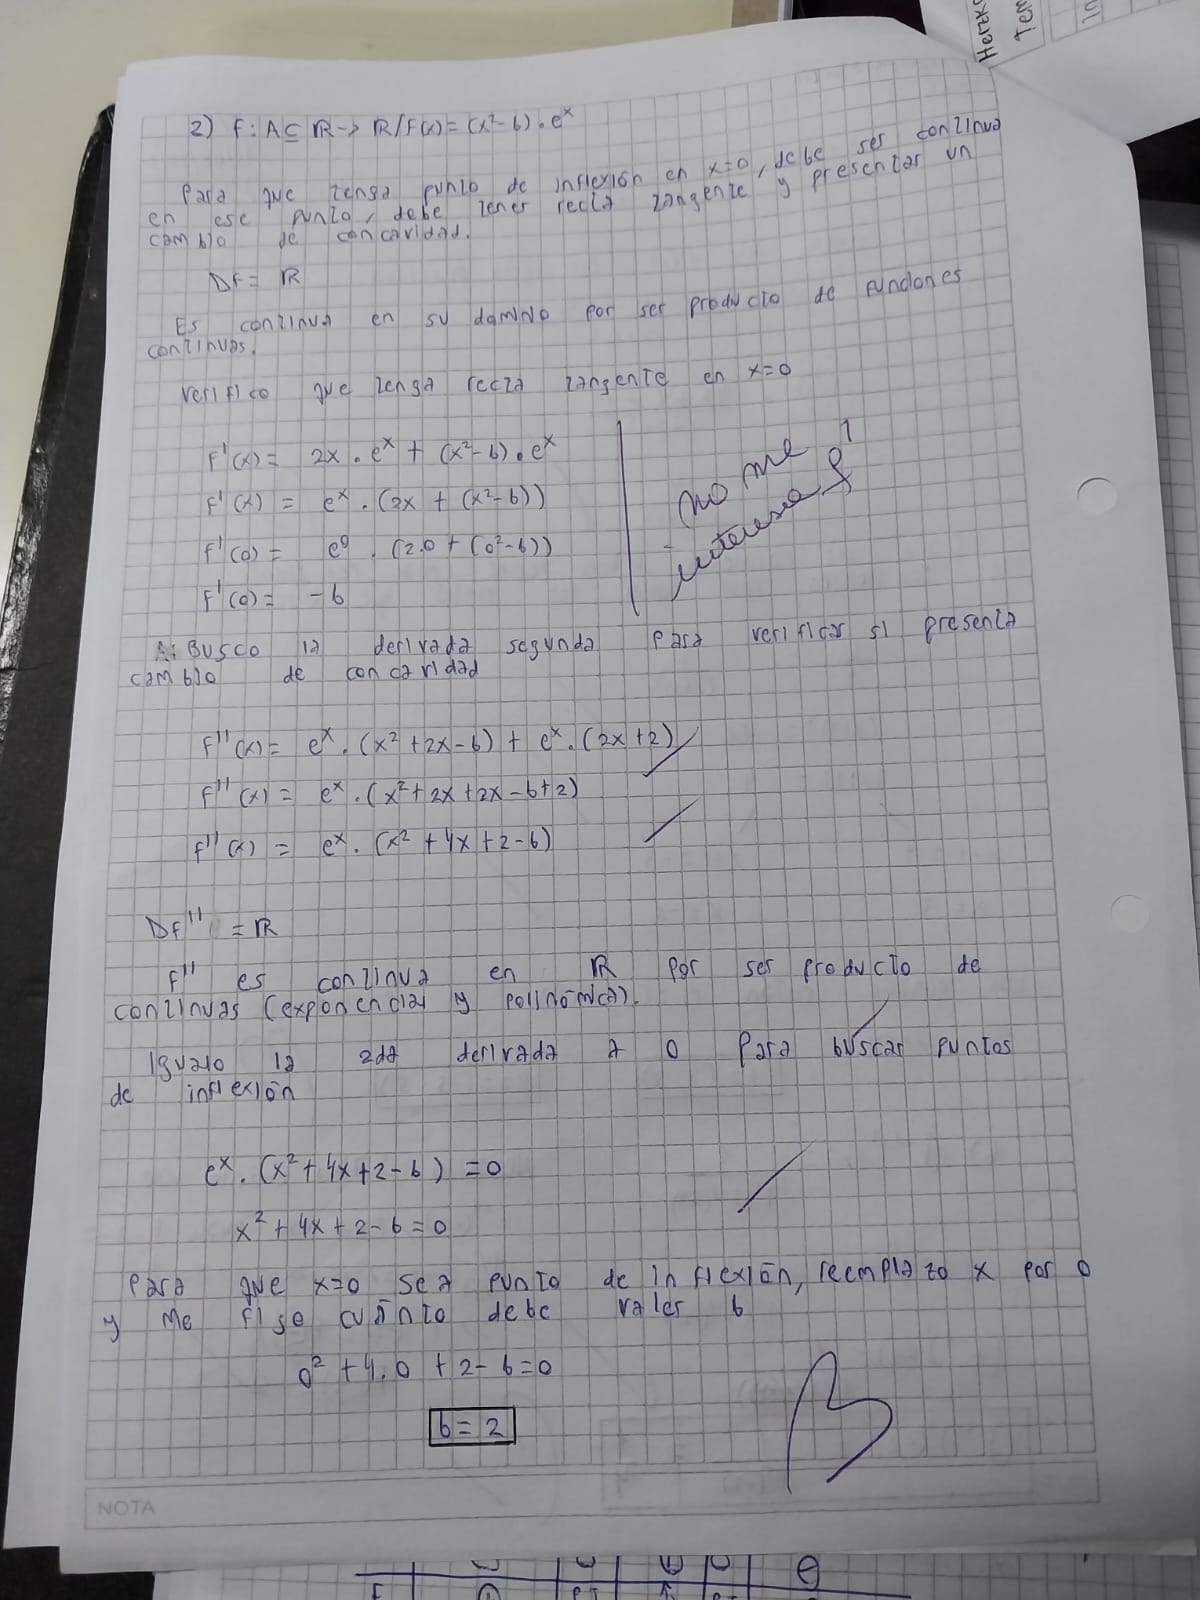 Herzk
Tem
In
2) f: A⊆ ℝ→ ℝ/f(x)= (x²-b).eˣ
Para que tenga punto de inflexión en x=0, debe ser continua
en ese punto, debe tener recta tangente y presentar un
cambio de concavidad.
Df= ℝ
Es continua en su dominio por ser producto de funciones
continuas.
Verifico que tenga recta tangente en x=0
f'(x)= 2x.eˣ + (x²-b).eˣ
f'(x) = eˣ.(2x + (x²-b))
f'(0)= e⁰.(2.0+(0²-b))
f'(0)= -b
no me
interesa f'
Busco la derivada segunda para verificar si presenta
cambio de concavidad
f''(x)= eˣ.(x²+2x-b) + eˣ.(2x+2)
f''(x) = eˣ.(x²+2x+2x-b+2)
f''(x) = eˣ.(x²+4x+2-b)
Df'' = ℝ
f'' es continua en ℝ por ser producto de
continuas (exponencial y polinómica).
Igualo la 2da derivada a 0 para buscar puntos
de inflexión
eˣ.(x²+4x+2-b) =0
x²+4x+2-b=0
Para que x=0 sea punto de inflexión, reemplazo x por 0
y me fijo cuánto debe valer b
0²+4.0+2-b=0
b=2
B
NOTA